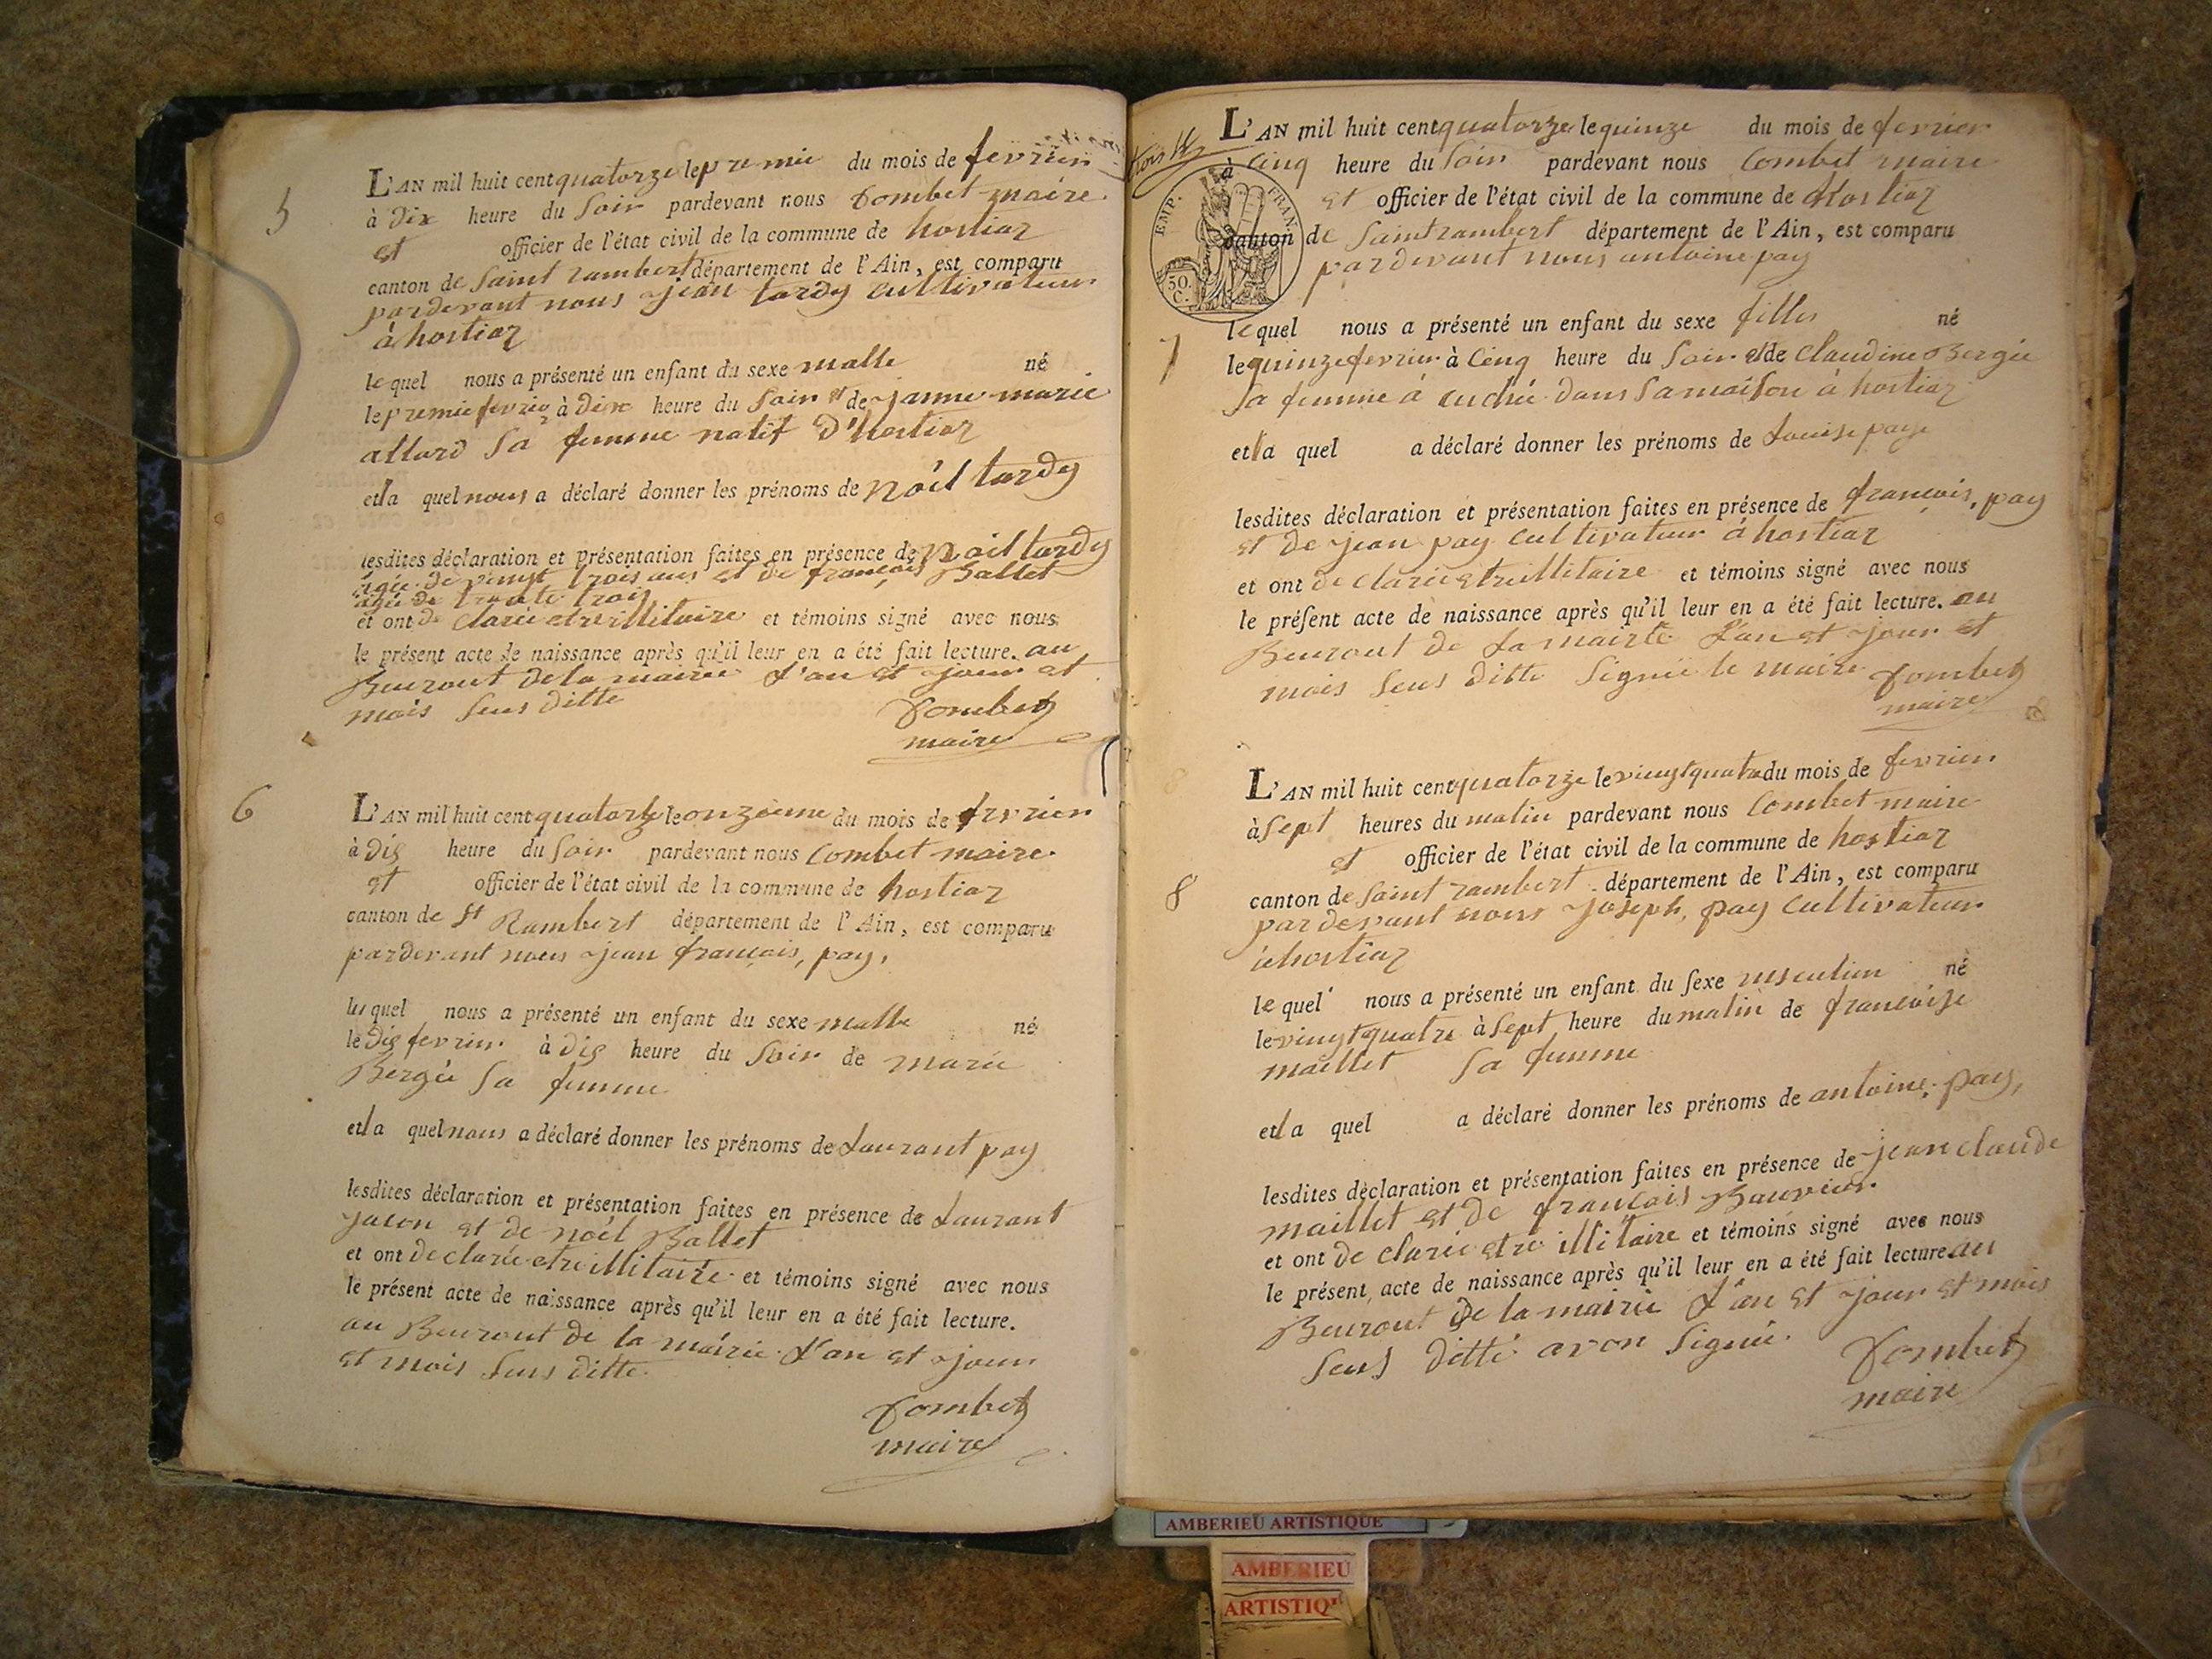 5
L'AN mil huit cent quatorze le premie du mois de fevrier
à dix heure du soir pardevant nous Combet maire
et officier de l'état civil de la commune de hostiaz
canton de Saint rambert département de l'Ain, est comparu
pardevant nous jean tardy cultivateur
à hostiaz
le quel nous a présenté un enfant du sexe malle né
le premie fevrier à dix heure du soir et de janne marie
allard sa femme natif d'hostiaz
et la quel nous a déclaré donner les prénoms de noél tardy
lesdites déclaration et présentation faites en présence de noil tardy
agée de vingt trois ans et de françois Ballet
agée de trante trois
et ont de clarée etre illitaire et témoins signé avec nous
le présent acte de naissance après qu'il leur en a été fait lecture. au
Beurout de la mairie L'an et jour et
mois seus ditte
Combet
maire
6
L'AN mil huit cent quatorze le onzieme du mois de fevrier
à dis heure du soir pardevant nous Combet maire
et officier de l'état civil de la commune de hostiaz
canton de St Rambert département de l'Ain, est comparu
pardevant nous jean françois, pay,
le quel nous a présenté un enfant du sexe malle né
le dis fevrier à dis heure du soir de marie
Bergée sa femme
et la quel nous a déclaré donner les prénoms de Laurant pay
lesdites déclaration et présentation faites en présence de Laurant
jacon et de noél Ballet
et ont de clarée etre illitaire et témoins signé avec nous
le présent acte de naissance après qu'il leur en a été fait lecture.
au Beurout de la mairie L'an et jour
et mois seus ditte
Combet
maire
EMP. FRAN.
50. C.
L'AN mil huit cent quatorze le quinze du mois de fevrier
à Cinq heure du soir pardevant nous Combet maire
et officier de l'état civil de la commune de Hostiaz
canton de Saint rambert département de l'Ain, est comparu
pardevant nous antoine pay
7
le quel nous a présenté un enfant du sexe filles né
le quinze fevrier à Cinq heure du soir et de Claudine Bergée
sa femme à cuchée dans sa maison à hostiaz
et la quel a déclaré donner les prénoms de Louise paye
lesdites déclaration et présentation faites en présence de françois, pay
et de jean pay cultivateur à hostiaz
et ont de clarée etre illitaire et témoins signé avec nous
le présent acte de naissance après qu'il leur en a été fait lecture. au
Beurout de La mairie L'an et jour et
mois seus ditte Signée le maire Combet
maire
8
L'AN mil huit cent quatorze le vingt quatre du mois de fevrier
à sept heures du matin pardevant nous Combet maire
et officier de l'état civil de la commune de hostiaz
canton de Saint rambert département de l'Ain, est comparu
pardevant nous joseph, pay cultivateur
à hostiaz
le quel nous a présenté un enfant du sexe msculin né
le vingt quatre à sept heure du matin de francoise
maillet sa femme
et la quel a déclaré donner les prénoms de antoine, pay,
lesdites déclaration et présentation faites en présence de jean claude
maillet et de francois
et ont de clarée etre illitaire et témoins signé avec nous
le présent acte de naissance après qu'il leur en a été fait lecture au
Beurout de la mairie L'an et jour et mois
seus ditte avon signée.
Combet
maire
AMBERIEU ARTISTIQUE
AMBERIEU
ARTISTIQ